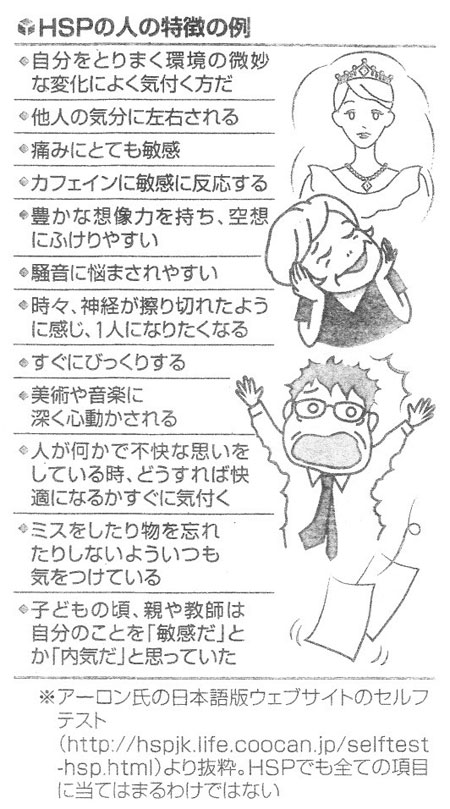 HSPの人の特徴の例
自分をとりまく環境の微妙
な変化によく気付く方だ
他人の気分に左右される
痛みにとても敏感
カフェインに敏感に反応する
豊かな想像力を持ち、空想
にふけりやすい
騒音に悩まされやすい
時々、神経が擦り切れたよう
に感じ、1人になりたくなる
すぐにびっくりする
美術や音楽に
深く心動かされる
人が何かで不快な思いを
している時、どうすれば快
適になるかすぐに気付く
ミスをしたり物を忘れ
たりしないよういつも
気をつけている
子どもの頃、親や教師は
自分のことを「敏感だ」と
か「内気だ」と思っていた
※アーロン氏の日本語版ウェブサイトのセルフ
テスト
(http://hspjk.life.coocan.jp/selftest
-hsp.html)より抜粋。HSPでも全ての項目
に当てはまるわけではない